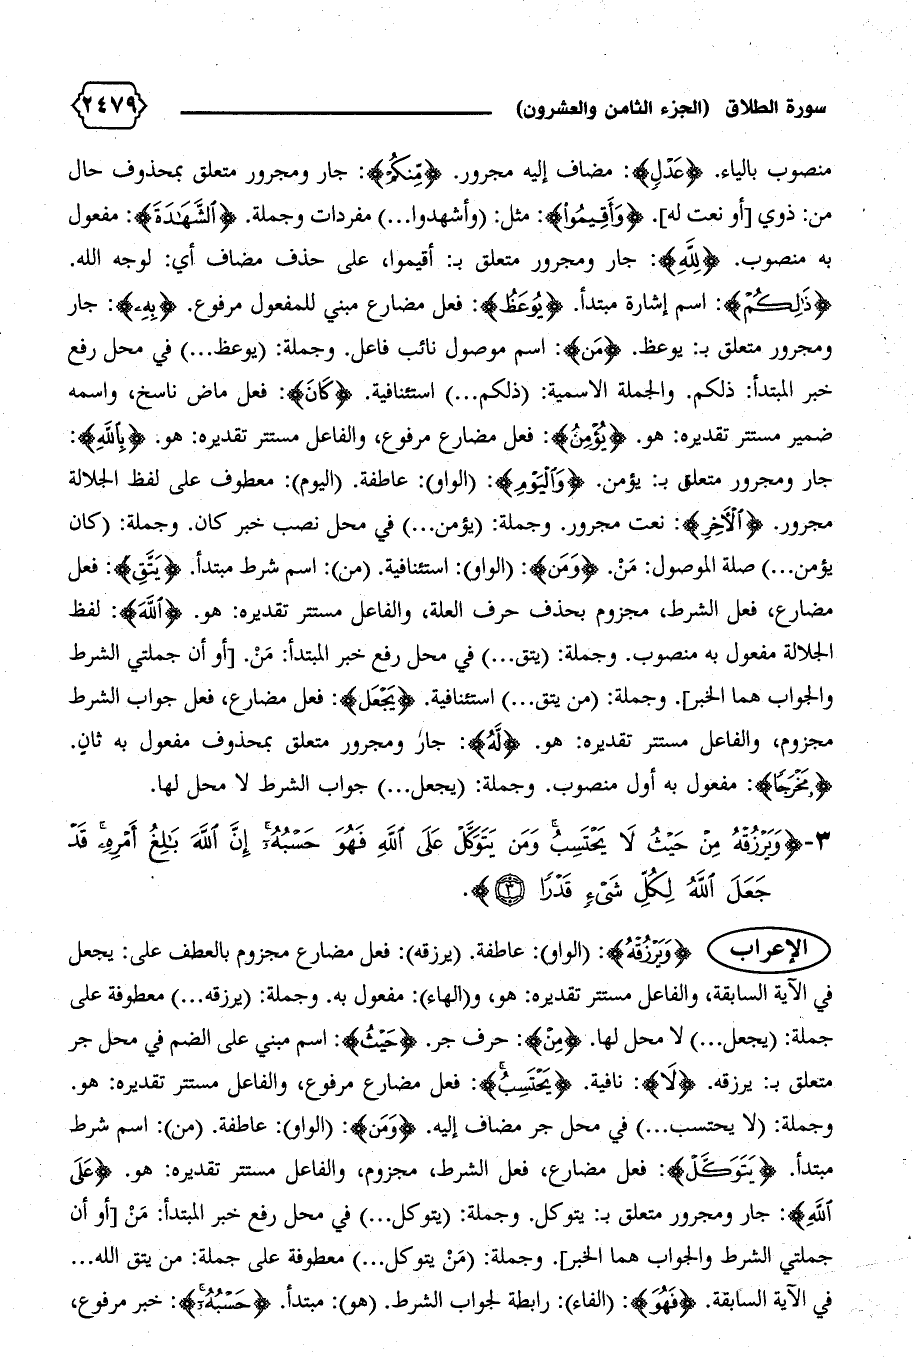 سورة الطلاق (الجزء الثامن والعشرون) ٢٤٧٩
منصوب بالياء. ﴿عَدْلٍ﴾: مضاف إليه مجرور. ﴿مِّنكُمْ﴾: جار ومجرور متعلق بمحذوف حال
من: ذوي [أو نعت له]. ﴿وَأَقِيمُوا۟﴾: مثل: (وأشهدوا...) مفردات وجملة. ﴿ٱلشَّهَـٰدَةَ﴾: مفعول
به منصوب. ﴿لِلَّهِ﴾: جار ومجرور متعلق بـ: أقيموا، على حذف مضاف أي: لوجه الله.
﴿ذَٰلِكُمْ﴾: اسم إشارة مبتدأ. ﴿يُوعَظُ﴾: فعل مضارع مبني للمفعول مرفوع. ﴿بِهِۦ﴾: جار
ومجرور متعلق بـ: يوعظ. ﴿مَن﴾: اسم موصول نائب فاعل. وجملة: (يوعظ...) في محل رفع
خبر المبتدأ: ذلكم. والجملة الاسمية: (ذلكم...) استئنافية. ﴿كَانَ﴾: فعل ماض ناسخ، واسمه
ضمير مستتر تقديره: هو. ﴿يُؤْمِنُ﴾: فعل مضارع مرفوع، والفاعل مستتر تقديره: هو. ﴿بِٱللَّهِ﴾:
جار ومجرور متعلق بـ: يؤمن. ﴿وَٱلْيَوْمِ﴾: (الواو): عاطفة. (اليوم): معطوف على لفظ الجلالة
مجرور. ﴿ٱلْـَٔاخِرِ﴾: نعت مجرور. وجملة: (يؤمن...) في محل نصب خبر كان. وجملة: (كان
يؤمن...) صلة الموصول: مَنْ. ﴿وَمَن﴾: (الواو): استئنافية. (من): اسم شرط مبتدأ. ﴿يَتَّقِ﴾: فعل
مضارع، فعل الشرط، مجزوم بحذف حرف العلة، والفاعل مستتر تقديره: هو. ﴿ٱللَّهَ﴾: لفظ
الجلالة مفعول به منصوب. وجملة: (يتق...) في محل رفع خبر المبتدأ: مَنْ. [أو أن جملتي الشرط
والجواب هما الخبر]. وجملة: (من يتق...) استئنافية. ﴿يَجْعَل﴾: فعل مضارع، فعل جواب الشرط
مجزوم، والفاعل مستتر تقديره: هو. ﴿لَّهُۥ﴾: جار ومجرور متعلق بمحذوف مفعول به ثانٍ.
﴿مَخْرَجًا﴾: مفعول به أول منصوب. وجملة: (يجعل...) جواب الشرط لا محل لها.
٣-﴿وَيَرْزُقْهُ مِنْ حَيْثُ لَا يَحْتَسِبُ ۚ وَمَن يَتَوَكَّلْ عَلَى ٱللَّهِ فَهُوَ حَسْبُهُۥٓ ۚ إِنَّ ٱللَّهَ بَـٰلِغُ أَمْرِهِۦ ۚ قَدْ
جَعَلَ ٱللَّهُ لِكُلِّ شَىْءٍ قَدْرًا ٣﴾.
الإعراب ﴿وَيَرْزُقْهُ﴾: (الواو): عاطفة. (يرزقه): فعل مضارع مجزوم بالعطف على: يجعل
في الآية السابقة، والفاعل مستتر تقديره: هو، و(الهاء): مفعول به. وجملة: (يرزقه...) معطوفة على
جملة: (يجعل...) لا محل لها. ﴿مِنْ﴾: حرف جر. ﴿حَيْثُ﴾: اسم مبني على الضم في محل جر
متعلق بـ: يرزقه. ﴿لَا﴾: نافية. ﴿يَحْتَسِبُ ۚ﴾: فعل مضارع مرفوع، والفاعل مستتر تقديره: هو.
وجملة: (لا يحتسب...) في محل جر مضاف إليه. ﴿وَمَن﴾: (الواو): عاطفة. (من): اسم شرط
مبتدأ. ﴿يَتَوَكَّلْ﴾: فعل مضارع، فعل الشرط، مجزوم، والفاعل مستتر تقديره: هو. ﴿عَلَى
ٱللَّهِ﴾: جار ومجرور متعلق بـ: يتوكل. وجملة: (يتوكل...) في محل رفع خبر المبتدأ: مَنْ [أو أن
جملتي الشرط والجواب هما الخبر]. وجملة: (مَنْ يتوكل...) معطوفة على جملة: من يتق الله...
في الآية السابقة. ﴿فَهُوَ﴾: (الفاء): رابطة لجواب الشرط. (هو): مبتدأ. ﴿حَسْبُهُۥٓ ۚ﴾: خبر مرفوع،